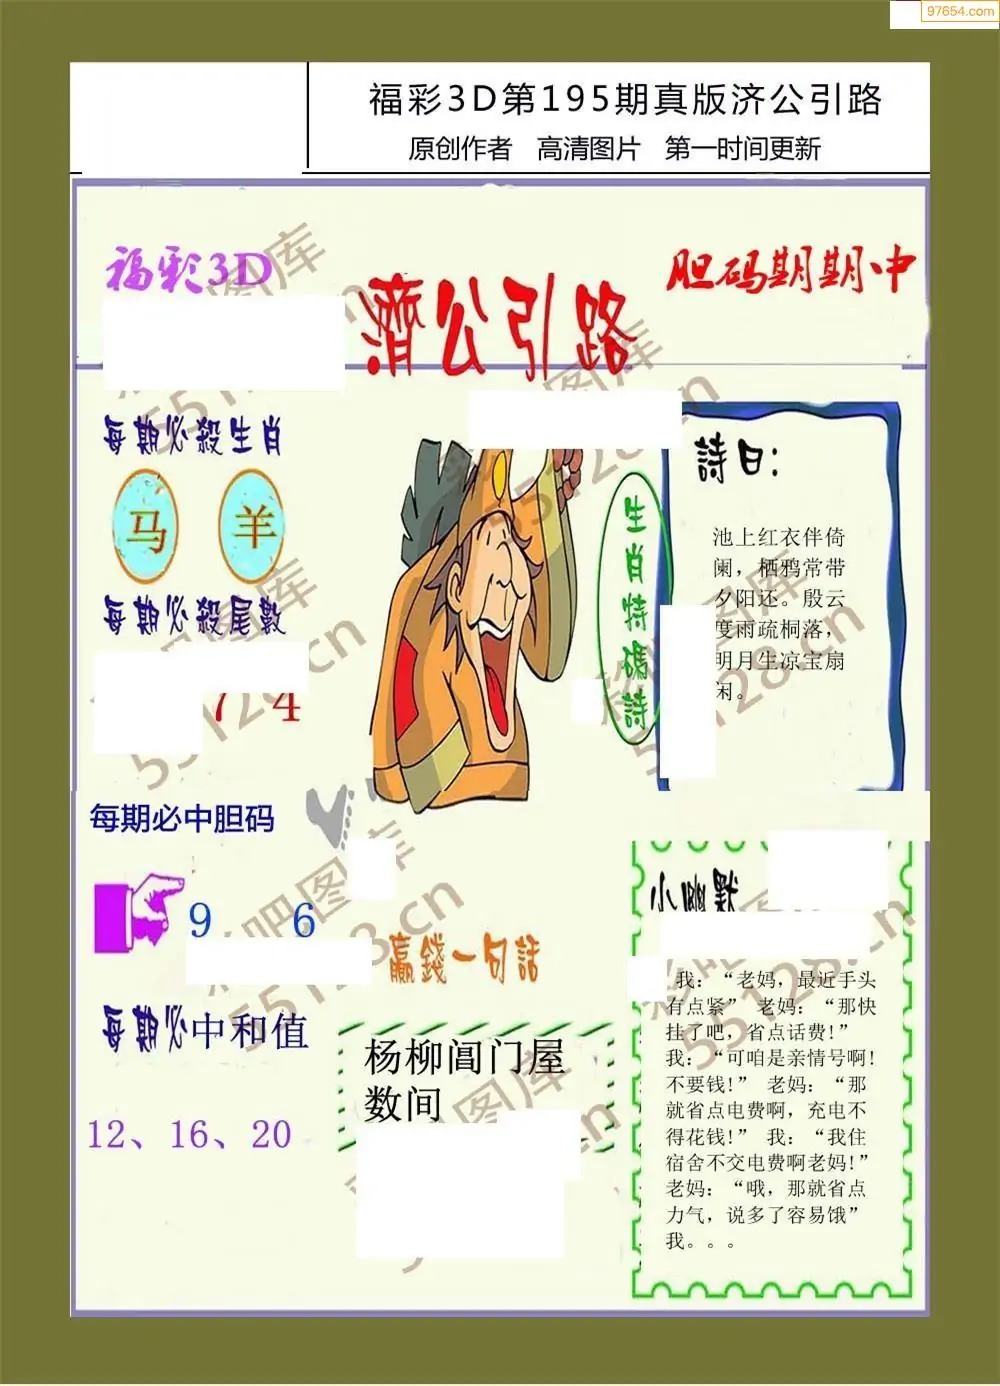 97654.com
福彩3D第195期真版济公引路
原创作者 高清图片 第一时间更新
福彩3D
濟公引路
胆码期期中
每期必殺生肖
马 羊
每期必殺尾數
7 4
每期必中胆码
9 6
每期必中和值
12、16、20
生肖特碼詩
詩曰:
池上红衣伴倚
阑，栖鸦常带
夕阳还。殷云
度雨疏桐落，
明月生凉宝扇
闲。
赢錢一句話
杨柳阊门屋
数间
小幽默
我：“老妈，最近手头
有点紧” 老妈：“那快
挂了吧，省点话费!”
我：“可咱是亲情号啊!
不要钱!” 老妈：“那
就省点电费啊，充电不
得花钱!” 我：“我住
宿舍不交电费啊老妈!”
老妈：“哦，那就省点
力气，说多了容易饿”
我。。。
彩吧图库
55128.cn